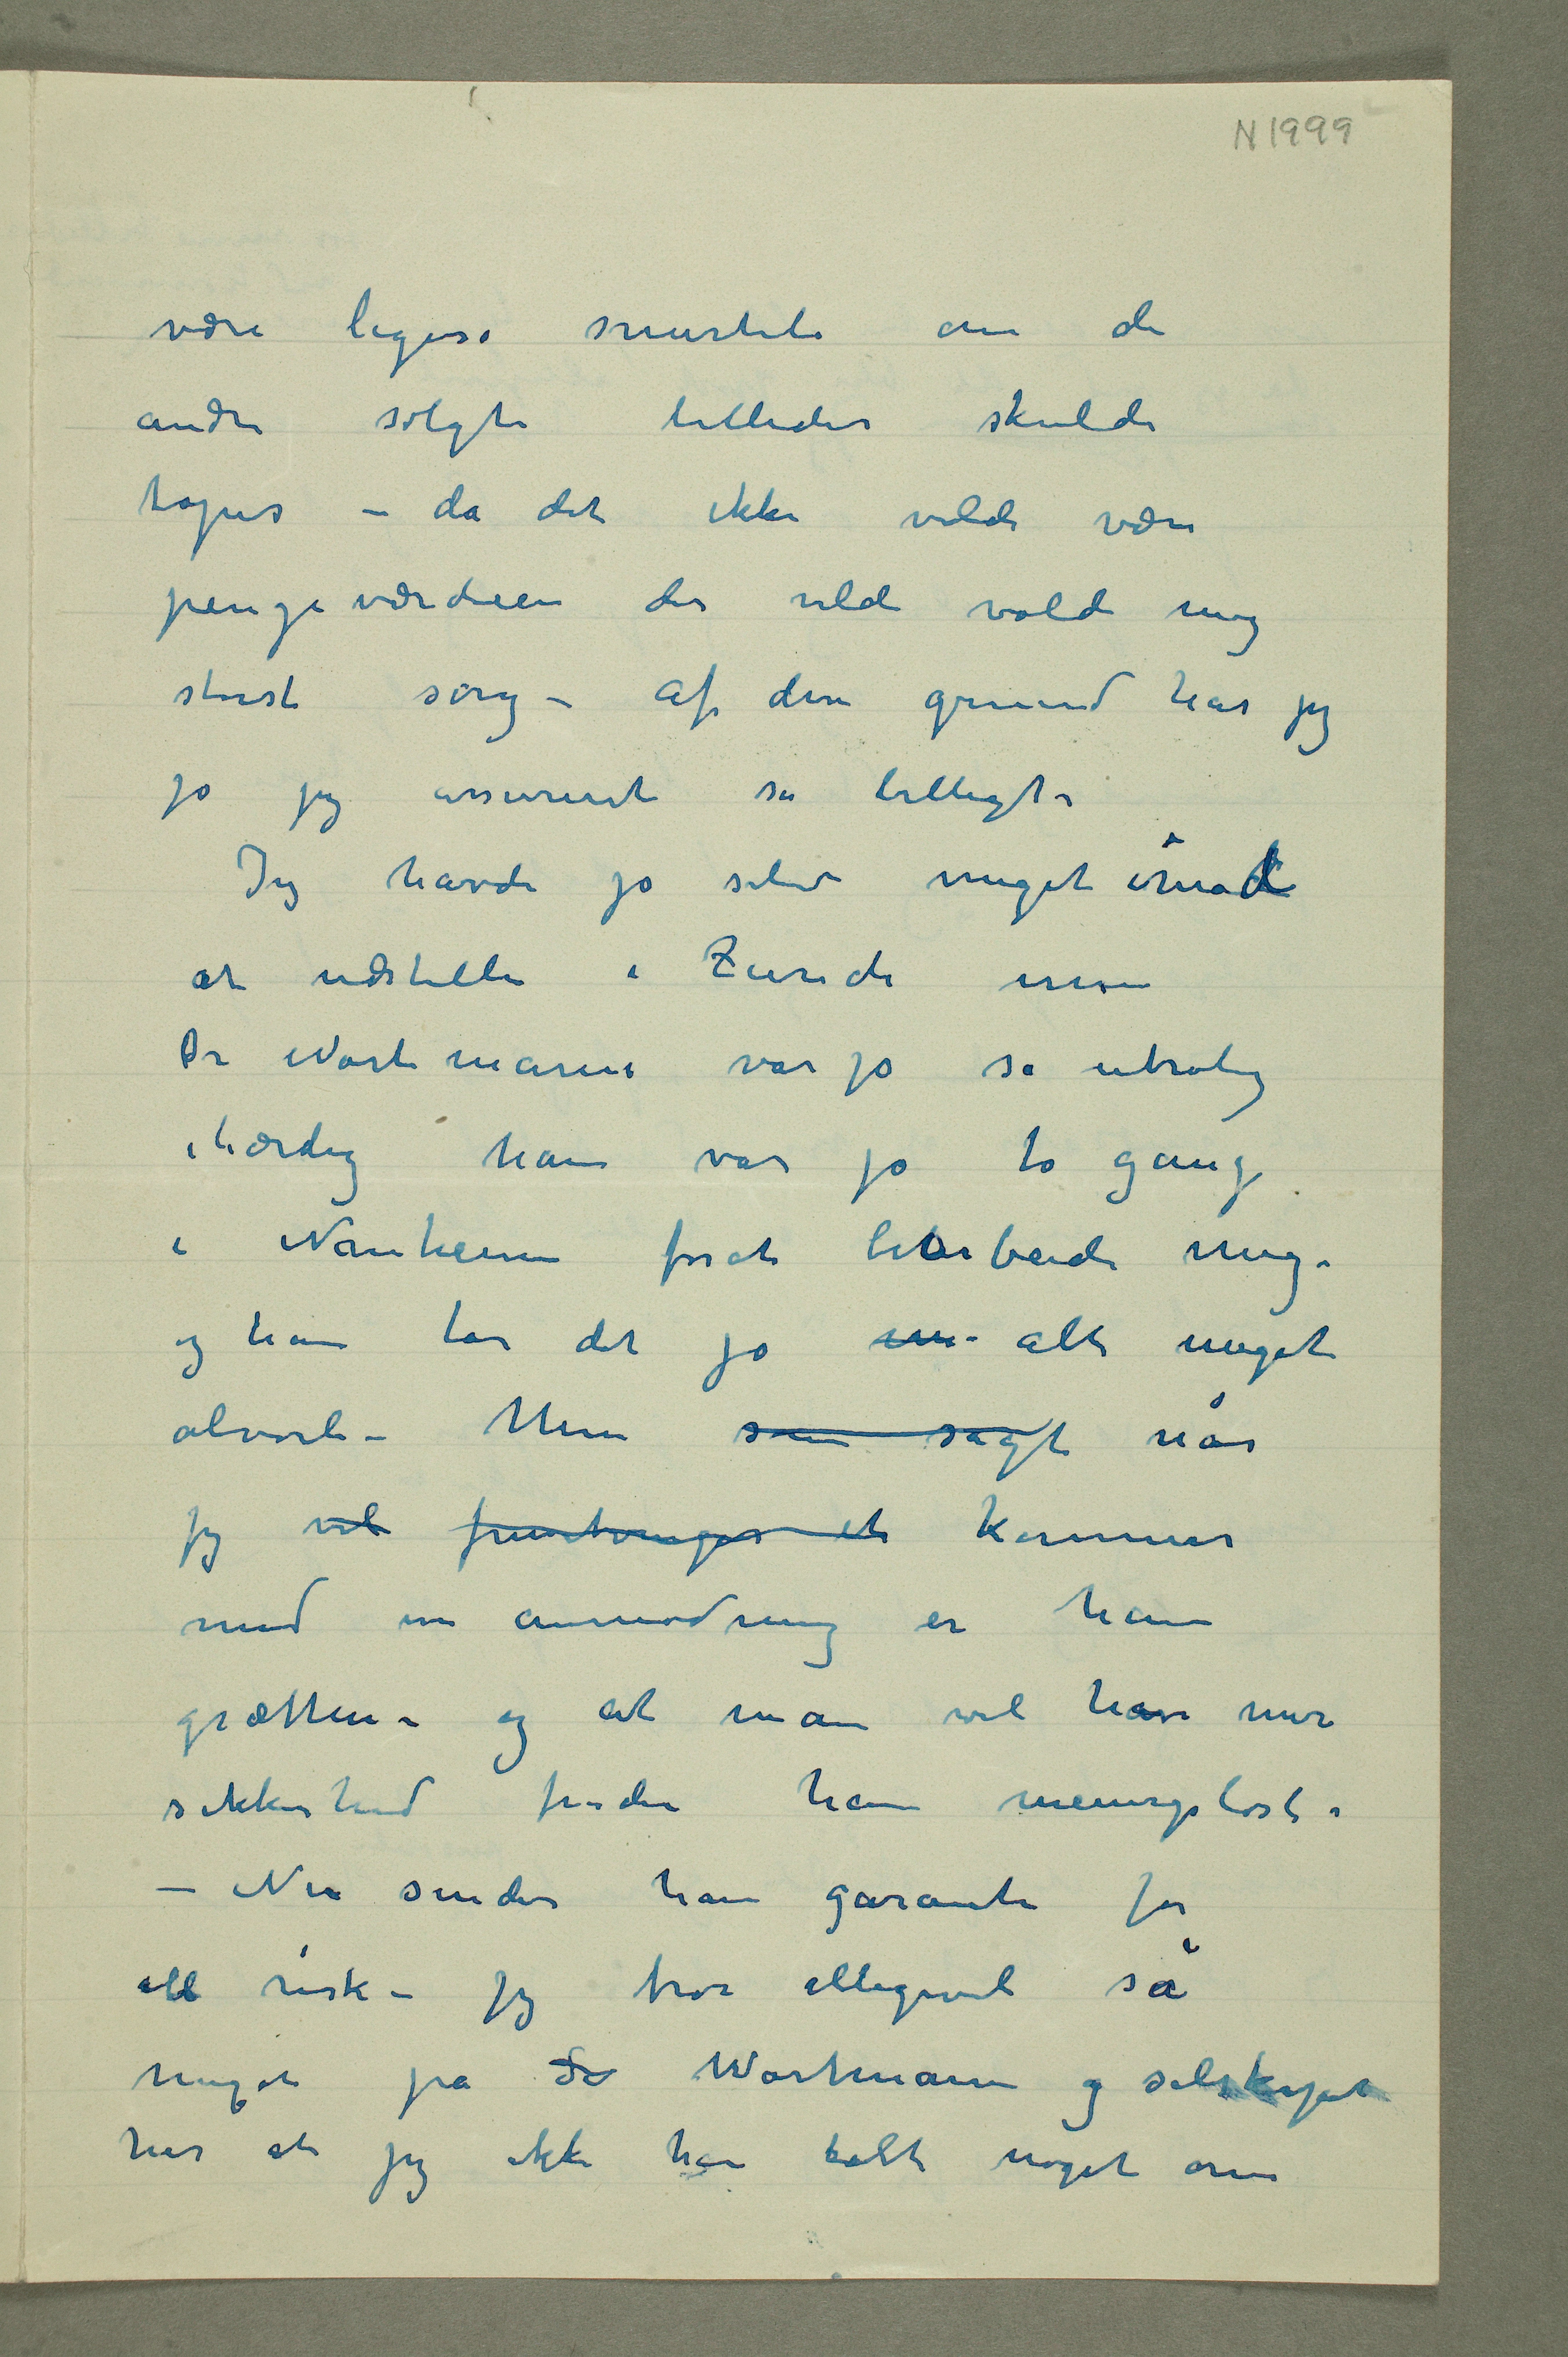 N 1999
være ligeså smerteli om de
andre solgte billeder skulde
tapes – da det ikke vilde være
pengeværdien der vilde volde mig
størst sorg – Af den grund har jeg
jo jeg assureret så billigt –
Jeg havde jo selv meget imod
at udstille i Zürich men
Dr Wartmann var jo så utrolig
ihærdig han var jo to gange
i Manheim forat bearbeide mig –
og han tar det jo alt meget
alvorli – Men som sagt når
jeg vil fremtvinger et kommer
med en anmodning er han
grætten – og at man vil have mer
sikkerhed finder han meningsløst –
– Nu sender han garanti for
all risk – Jeg tror alligevel så
meget på Dr Wartmann og selskapet
her at jeg ikke har talt noget om